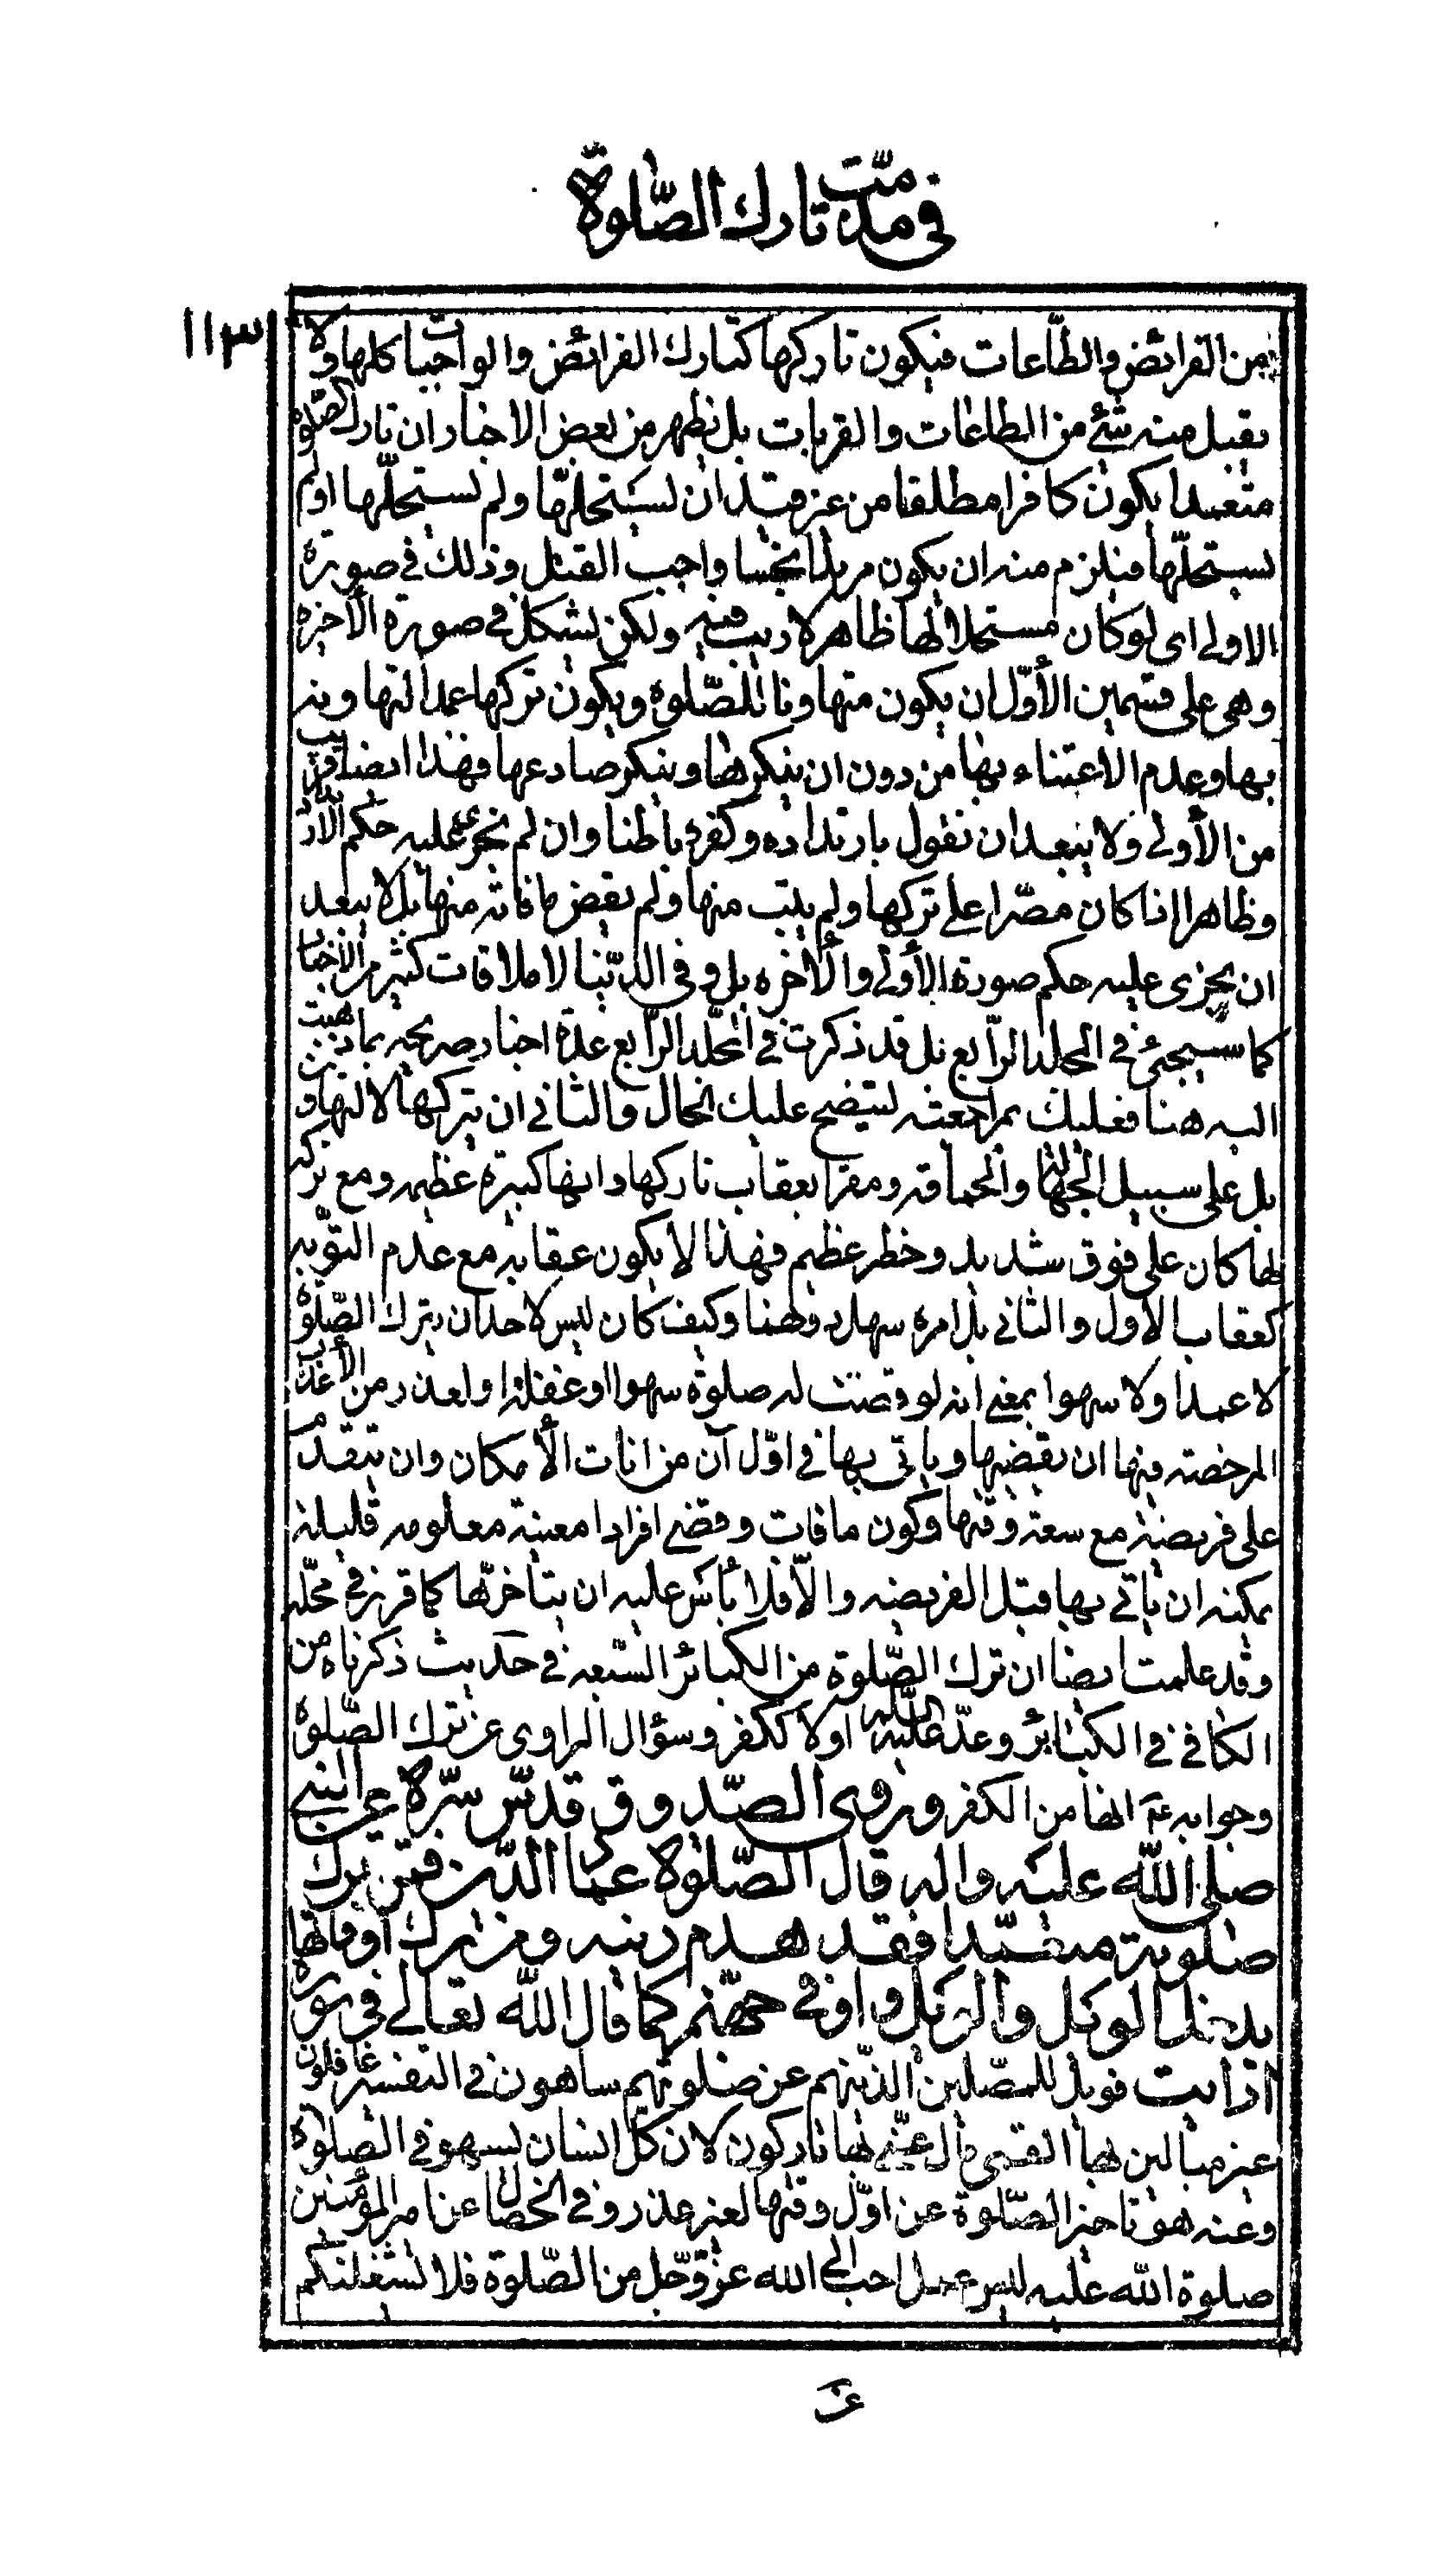 في مذمّت تارك الصّلوة
١١٣
من الفرائض والطّاعات فيكون تاركها كتارك الفرائض والواجبات كلها ولا
يقبل منه شئ من الطاعات والقربات بل يظهر من بعض الاخبار ان تارك الصّلوة
متعمدا يكون كافرا مطلقا من غير قيد ان يستحلّها ولم يستحلّها اولم
يستحلّها فيلزم منه ان يكون مرتدا نجسا واجب القتل وذلك في صورة
الاولى اى لو كان مستحلا لها ظاهر لا ريب فيه ولكن يشكل في صورة الأخرة
وهى على قسمين الأوّل ان يكون متهاونا للصّلوة ويكون تركها عمدا لتهاونه
بها وعدم الاعتناء بها من دون ان ينكرها وينكر صادعها فهذا ايضا قريب
من الأولى ولا يبعد ان نقول بارتداده وكفره باطنا وان لم نجر عليه حكم الارتداد
وظاهرا اذا كان مصّرا على تركها ولم يتب منها ولم يقض ما فاته منها بل لا يبعد
ان يجزى عليه حكم صورة الأولى والأخره بل وفى الدّنيا لاملاقات كثير من الأخبار
كما سيجئ في المجلد الرّابع بل قد ذكرت في المجلّد الرّابع عدّة اخبار صريحه بما ذهبت
اليه هنا فعليك بمراجعته ليتضح عليك الحال والثانى ان يتركها لا لتهاون
بل على سبيل الجهالة والحماقه ومقرا بعقاب تاركها وانها كبيرة عظيمه ومع تركه
لها كان على فوق شديد وخطر عظيم فهذا لا يكون عقابه مع عدم التوّبه
كعقاب الأول والثانى بل امره سهل وهنا وكيف كان ليس لاحد ان يترك الصّلوة
لا عمدا ولا سهوا بمعنى انه لو فضت له صلوة سهوا او غفلة او لعذر من الأعذار
المرخصته فيها ان يقضيها ويأتى بها في اوّل آن من انات الأمكان وان يتقدّم
على فريضة مع سعة وقتها وكون ما فات وقضى افرادا معينة معلومه قليلة
يمكنه ان يأتي بها قبل الفريضه والاّ فلا بأس عليه ان يتأخرّها كما قرر في محلّه
وقد علمت ايضا ان ترك الصّلوة من الكبائر السّبعه في حديث ذكرناه من
الكافى في الكبائر وعدّ عليه السّلام اولا ككفر وسؤال الراوى عن ترك الصّلوة
وجوابه عم انها من الكفر وروى الصّدوق قدّس سّره عن النبى
صلى اللّه عليه واله قال الصّلوة عماد الدّين فمن ترك
صلوته متعمّدا فقد هدم دينه ومن ترك اوقاتها
يدخل الويل والويل واد في جهنّم كما قال اللّه تعالى في سورة
ارايت فويل للمصّلين الذّينهم عن صلوتهم ساهون في التفسير غافلون
غير مبالين لها القمى قال عنى بها تاركون لان كلّ انسان يسهو في الصّلوة
وعنه هو تاخير الصّلوة عن اوّل وقتها لغير عذر وفي الخصال عن امير المؤمنين
صلوة اللّه عليه ليس عمل احب الى الله عزّ وجّل من الصّلوة فلا تشغلنكم
عن